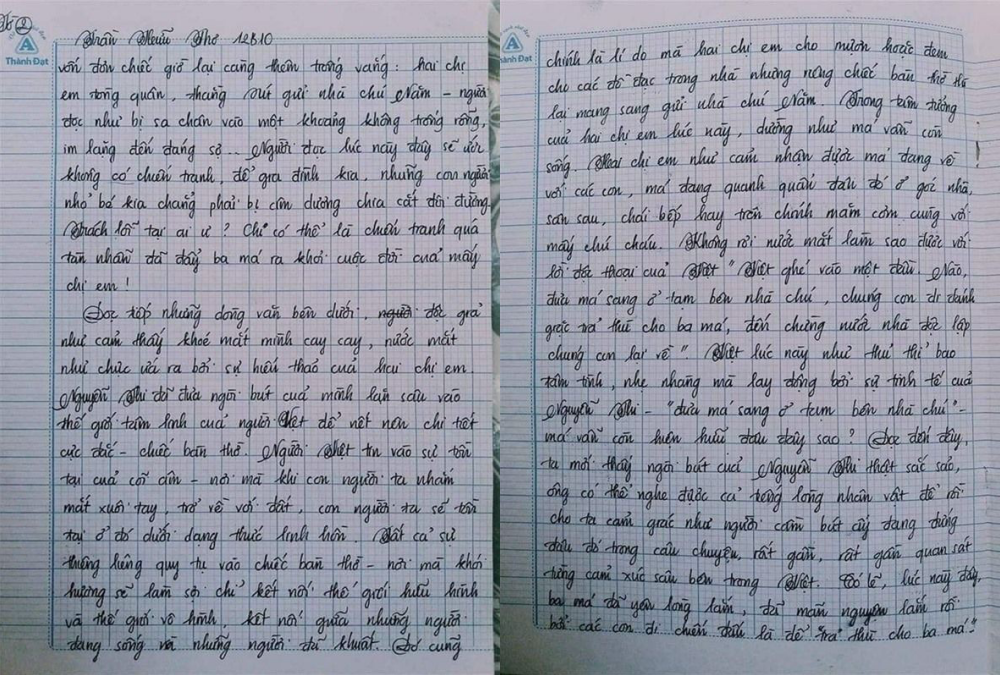 Tờ 2
Trần Hữu Thơ 12B10
A
Thành Đạt
vốn đơn chiếc giờ lại càng thêm trống vắng: hai chị
em tòng quân, thằng Út gửi nhà chú Năm – người
đọc như bị sa chân vào một khoảng không trống rỗng,
im lặng đến đáng sợ... Người đọc lúc này đây sẽ ước
không có chiến tranh, để gia đình kia, những con người
nhỏ bé kia chẳng phải bị âm dương chia cắt đôi đường.
Trách lỗi tại ai ư? Chỉ có thể là chiến tranh quá
tàn nhẫn đã đẩy ba má ra khỏi cuộc đời của mấy
chị em!
Đọc tiếp những dòng văn bên dưới, người độc giả
như cảm thấy khoé mắt mình cay cay, nước mắt
như chực ứa ra bởi sự hiếu thảo của hai chị em.
Nguyễn Thi đã đưa ngòi bút của mình lặn sâu vào
thế giới tâm linh của người Việt để viết nên chi tiết
cực đắt – chiếc bàn thờ. Người Việt tin vào sự tồn
tại của cõi âm – nơi mà khi con người ta nhắm
mắt xuôi tay, trở về với đất, con người ta sẽ tồn
tại ở đó dưới dạng thức linh hồn. Tất cả sự
thiêng liêng quy tụ vào chiếc bàn thờ – nơi mà khói
hương sẽ làm sợi chỉ kết nối thế giới hữu hình
và thế giới vô hình, kết nối giữa những người
đang sống và những người đã khuất. Đó cũng
Thành Đạt
chính là lí do mà hai chị em cho mượn hoặc đem
cho các đồ đạc trong nhà nhưng riêng chiếc bàn thờ thì
lại mang sang gửi nhà chú Năm. Trong tâm tưởng
của hai chị em lúc này, dường như má vẫn còn
sống. Hai chị em như cảm nhận được má đang về
với các con, má đang quanh quẩn đâu đó ở gốc nhà,
sân sau, chái bếp hay trên chính mâm cơm cúng với
mấy chú cháu. Không rơi nước mắt làm sao được với
lời độc thoại của Việt "Việt ghé vào một đầu. Nào,
đưa má sang ở tạm bên nhà chú, chúng con đi đánh
giặc trả thù cho ba má, đến chừng nước nhà độc lập
chúng con lại về". Việt lúc này như thủ thỉ bao
tâm tình, nhẹ nhàng mà lay động bởi sự tinh tế của
Nguyễn Thi – "đưa má sang ở tạm bên nhà chú" –
má vẫn còn hiện hữu đâu đây sao? Đọc đến đây,
ta mới thấy ngòi bút của Nguyễn Thi thật sắc sảo,
ông có thể nghe được cả tiếng lòng nhân vật để rồi
cho ta cảm giác như người cầm bút ấy đang đứng
đâu đó trong câu chuyện, rất gần, rất gần quan sát
từng cảm xúc sâu bên trong Việt. Có lẽ, lúc này đây,
ba má đã yên lòng lắm, đã mãn nguyện lắm rồi
bởi các con đi chiến đấu là để "trả thù cho ba má."